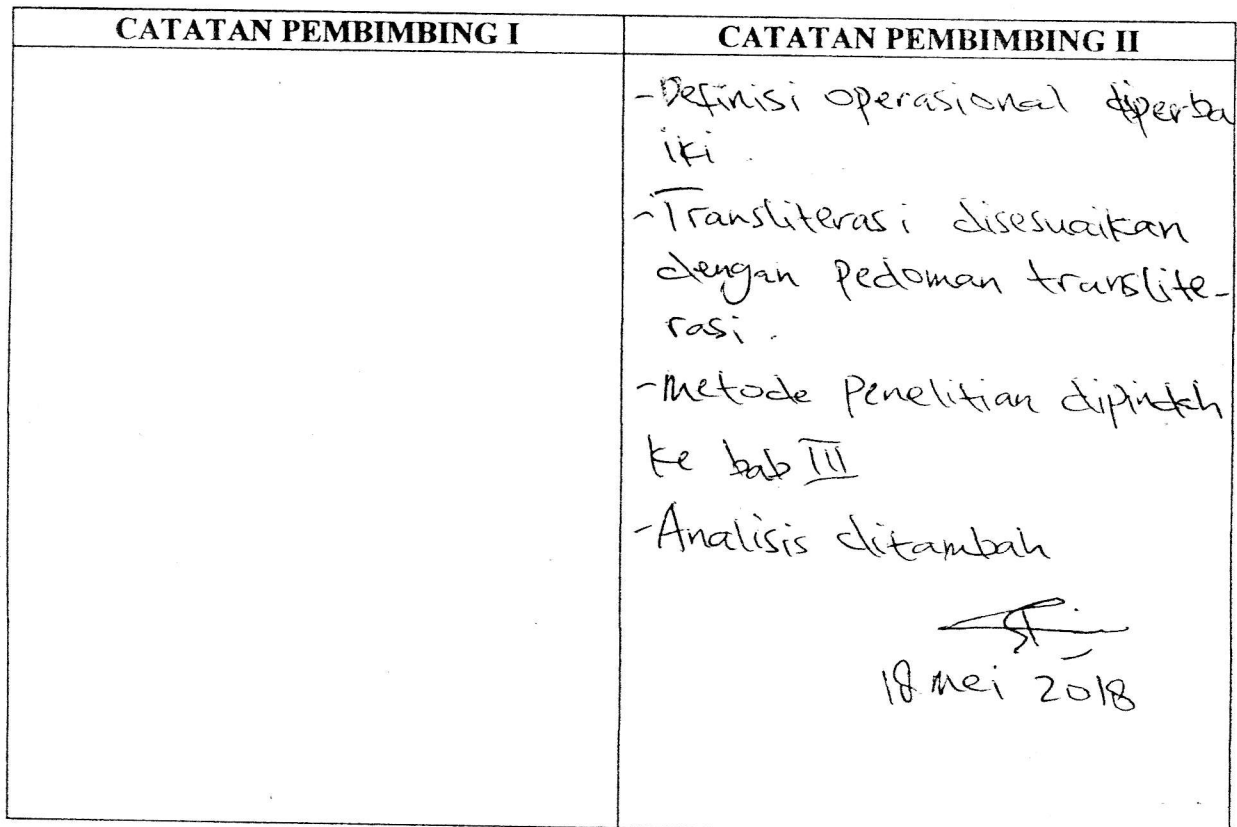 CATATAN PEMBIMBING I
CATATAN PEMBIMBING II
- Definisi operasional diperba
iki.
- Transliterasi disesuaikan
dengan pedoman translite-
rasi.
- Metode penelitian dipindah
ke bab III
- Analisis ditambah
18 Mei 2018